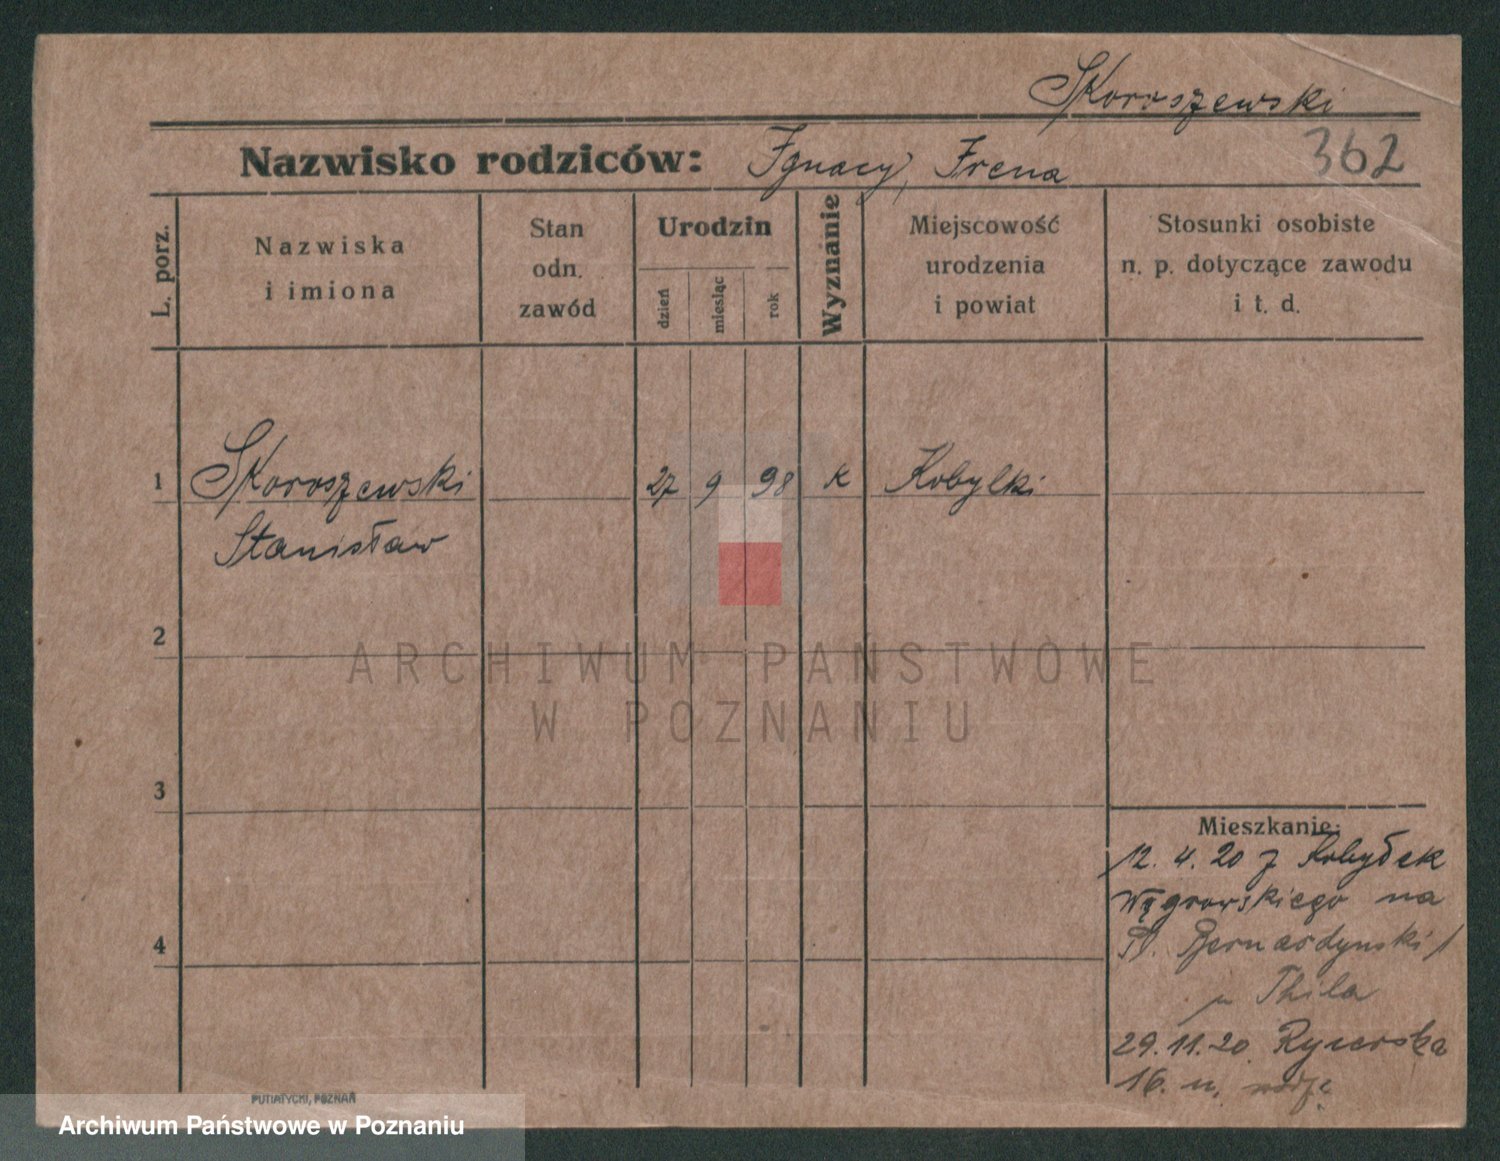 Skoroszewski
Nazwisko rodziców: Ignacy, Irena
362
L. porz.
Nazwiska
i imiona
Stan
odn.
zawód
Urodzin
dzień
miesiąc
rok
Wyznanie
Miejscowość
urodzenia
i powiat
Stosunki osobiste
n. p. dotyczące zawodu
i t. d.
1 Skoroszewski 27 9 98 K Kobylki
Stanisław
2
3
4
Mieszkanie:
12. 4. 20 z Kobyłek
Wągrowskiego na
Pl. Bernardynski 1
u Thila
29.11.20 Rycerska
16. u.
PUTIATYCKI, POZNAŃ
ARCHIWUM PAŃSTWOWE
W POZNANIU
Archiwum Państwowe w Poznaniu